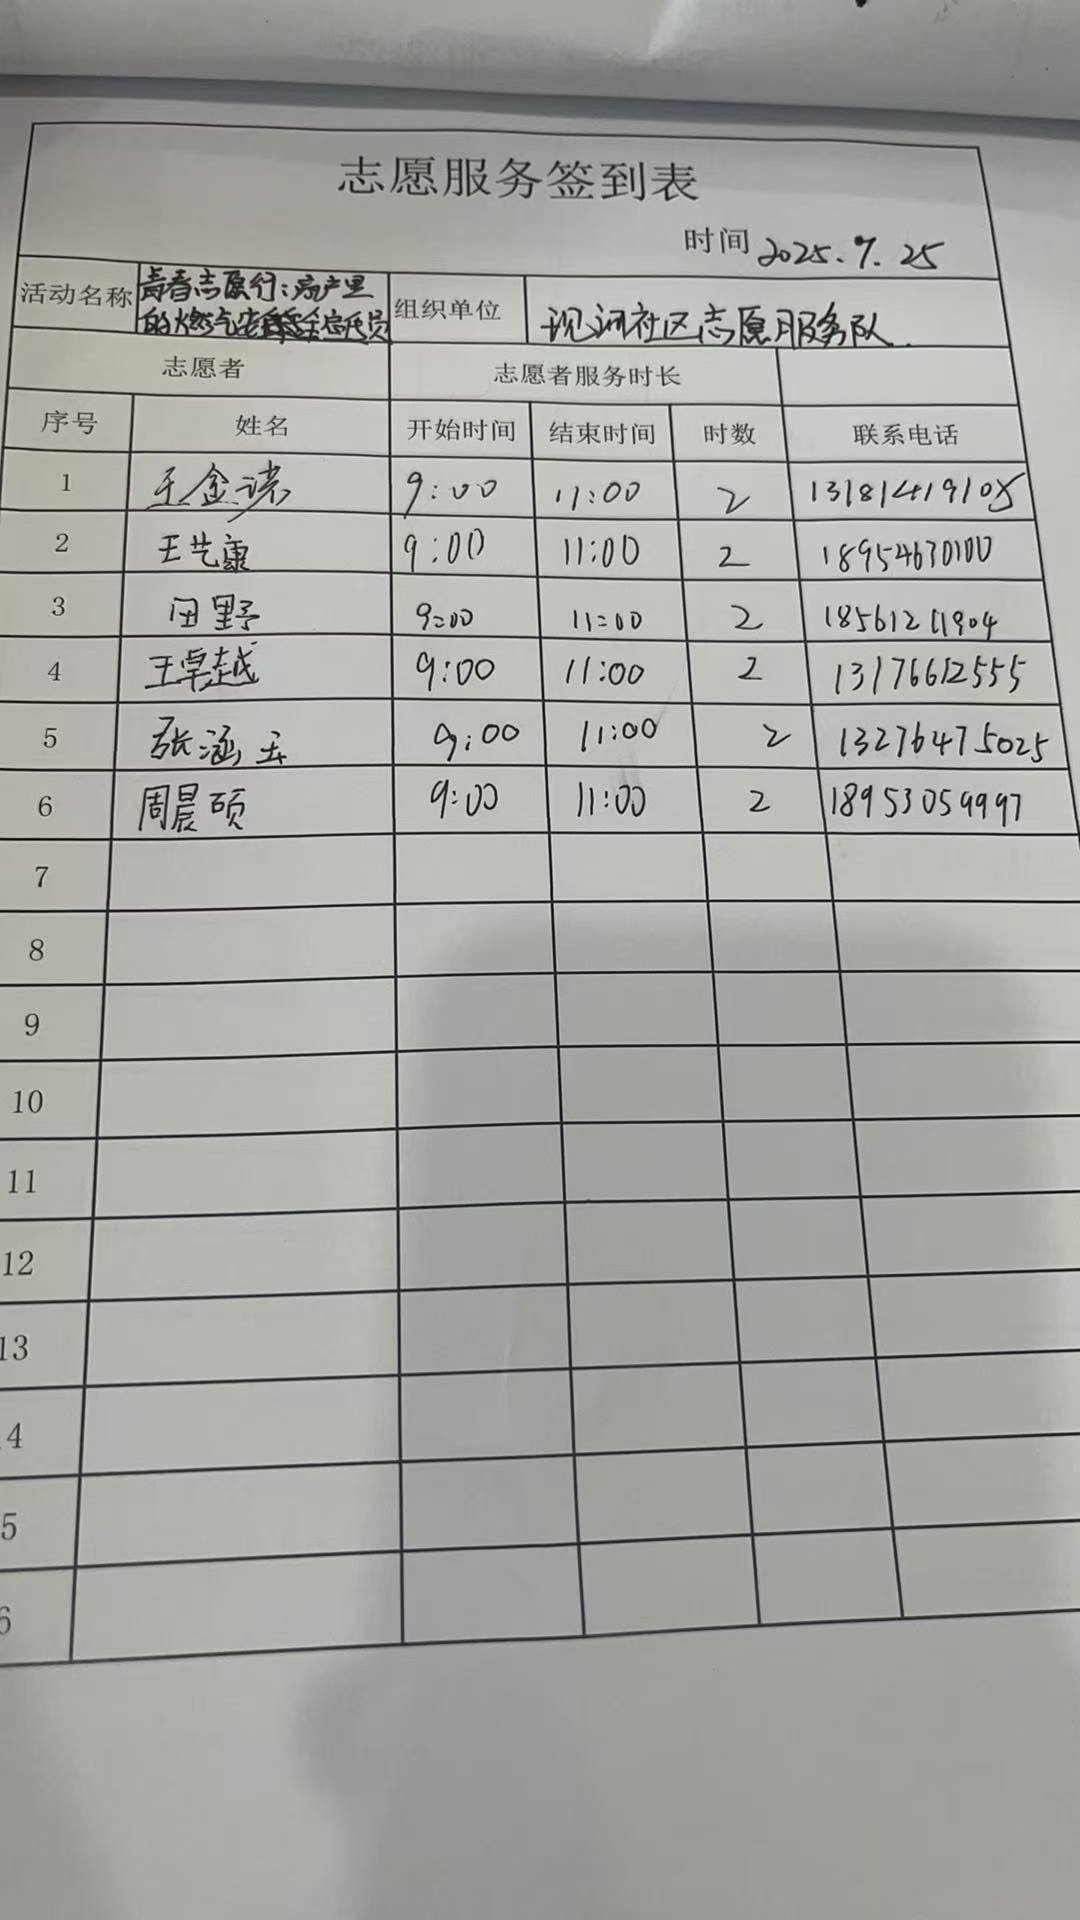 志愿服务签到表
时间 2025.7.25
活动名称 青春志愿行:房产里 组织单位 现河社区志愿服务队.
的燃气安全宣传员
志愿者 志愿者服务时长
序号 姓名 开始时间 结束时间 时数 联系电话
1 王金诺 9:00 11:00 2 13181419105
2 王艺康 9:00 11:00 2 18954670100
3 田野 9:00 11:00 2 18561211904
4 王卓越 9:00 11:00 2 13176612555
5 张涵玉 9:00 11:00 2 13276475025
6 周晨硕 9:00 11:00 2 18953059997
7
8
9
10
11
12
13
4
5
6